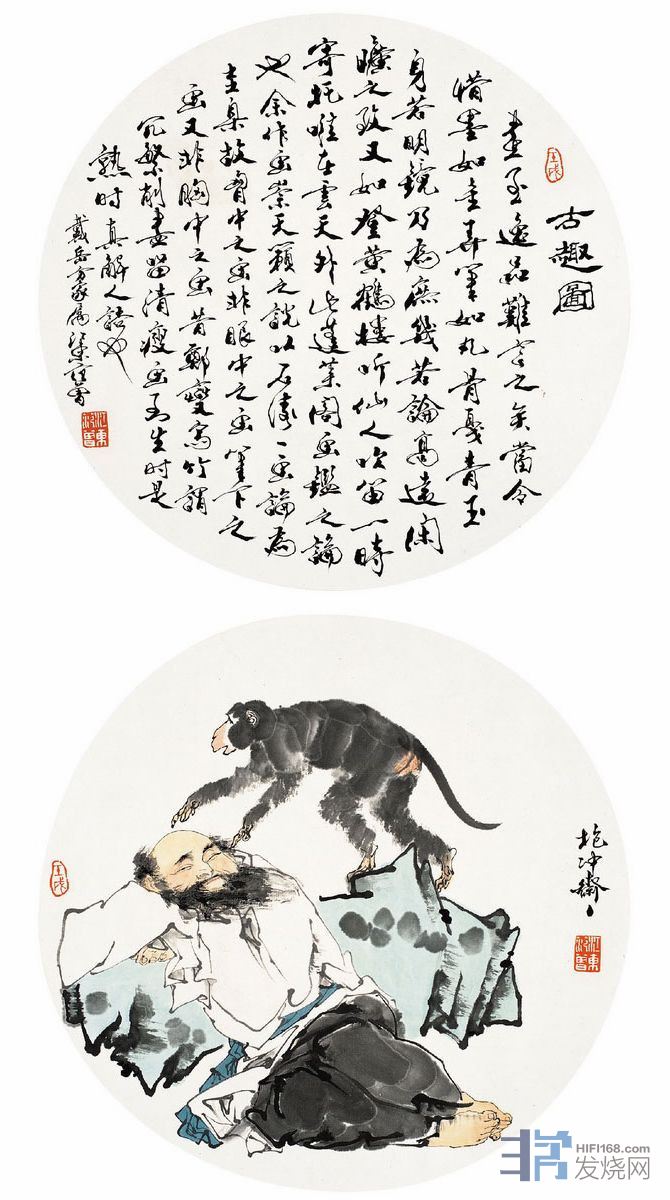 壬戌
古趣圖
畫至逸品難言之矣當令
惜墨如金弄筆如丸骨戛青玉
身若明鏡乃為庶幾若論高遠閑
曠之致又如登黃鶴樓听仙人吹笛一時
寄托唯在雲天外此蓬萊閣畫鑑之論
也余作畫崇天籟之說以石濤一畫論為
圭臬故胷中之畫非眼中之畫筆下之
畫又非胸中之畫昔鄭燮寫竹謂
冗繁削盡留清瘦畫到生時是
熟時真解人語也
戴岳方家屬江東范曾
江東范曾
抱冲齋
江東范曾
壬戌
HIFI168.com
发烧网